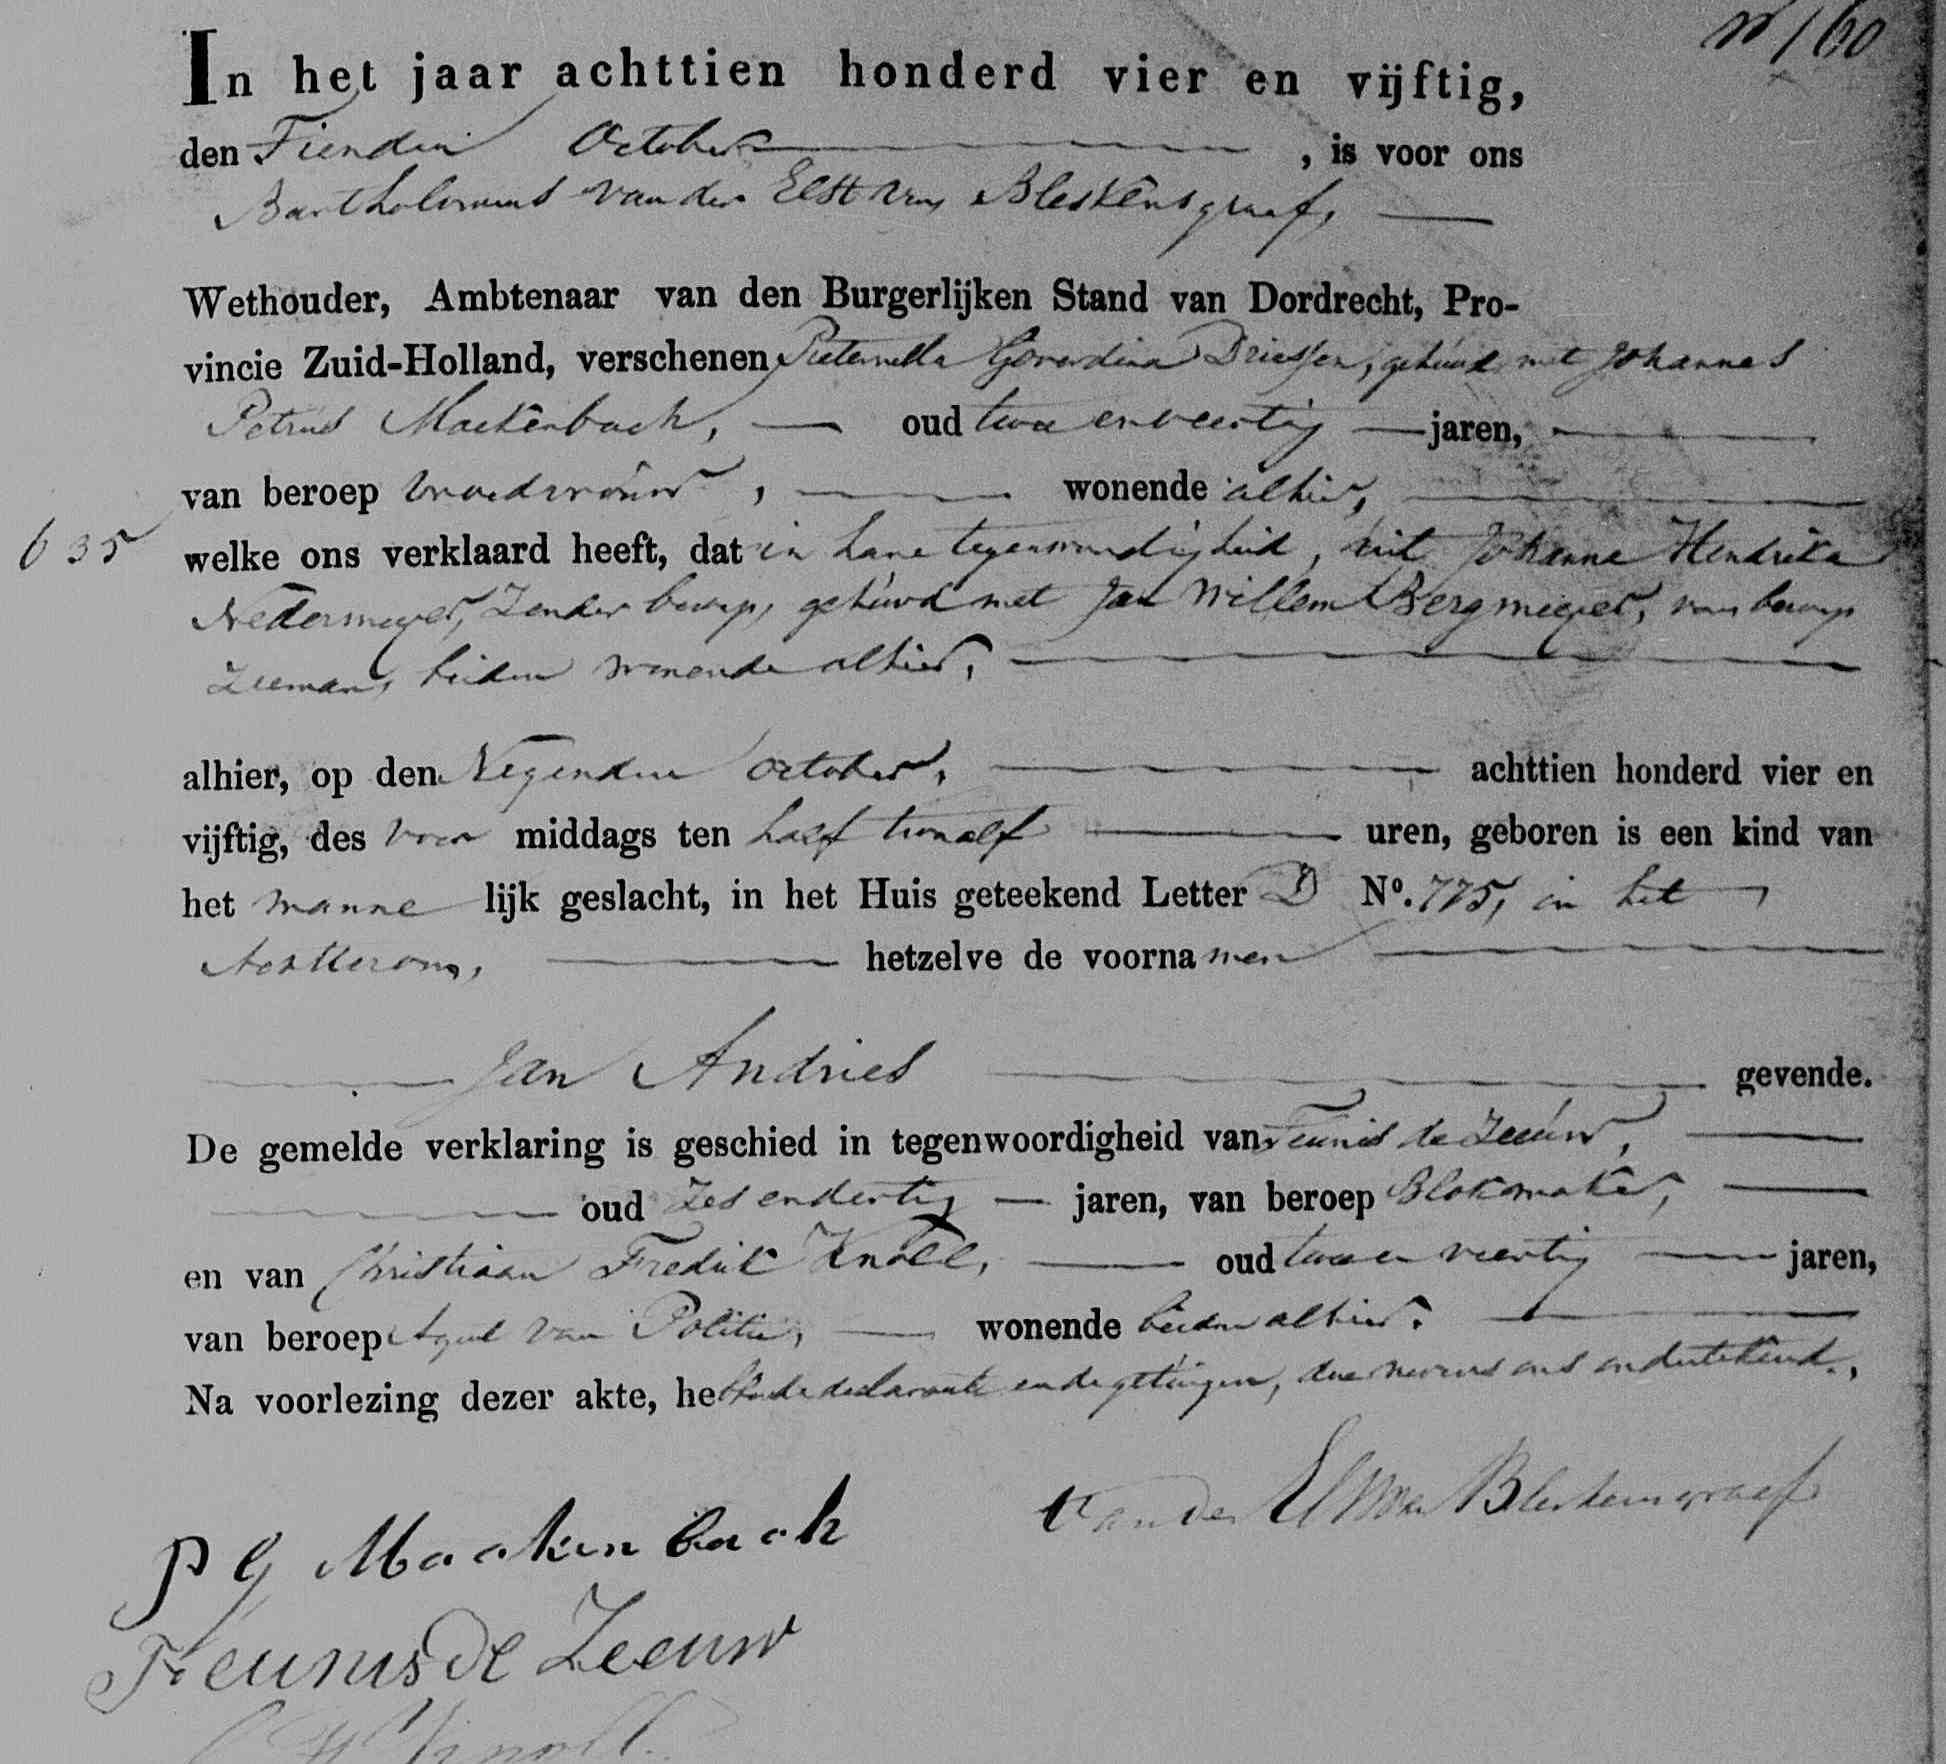 160
In het jaar achttien honderd vier en vijftig,
den Tienden October , is voor ons
Bartholomeus van der Elst van Bleskensgraaf,
Wethouder, Ambtenaar van den Burgerlijken Stand van Dordrecht, Pro-
vincie Zuid-Holland, verschenen Pieternella Goverdina Driessen, gehuwd met Johannes
Petrus Mackenbach, oud twee en veertig jaren,
van beroep vroedvrouw, wonende alhier,
635
welke ons verklaard heeft, dat in hare tegenwoordigheid, uit Johanna Hendrika
Nedermeyer, zonder beroep, gehuwd met Jan Willem Bergmeyer, van beroep
Zeeman, beiden wonende alhier,
alhier, op den Negenden October, achttien honderd vier en
vijftig, des voor middags ten half twaalf uren, geboren is een kind van
het manne lijk geslacht, in het Huis geteekend Letter D No. 775, in het
hetzelve de voorna men
Jan Andries gevende.
De gemelde verklaring is geschied in tegenwoordigheid van Teunis de Zeeuw,
oud zes en dertig jaren, van beroep Blokmaker,
en van Christiaan Fredrik Knoll, oud twee en veertig jaren,
van beroep Agent van Politie, wonende beiden alhier.
Na voorlezing dezer akte, hebben de declarante en de getuigen, deze nevens ons onderteekend.
P G Maakenbach
van der Elst van Bleskensgraaf
Teunis de Zeeuw
Knoll